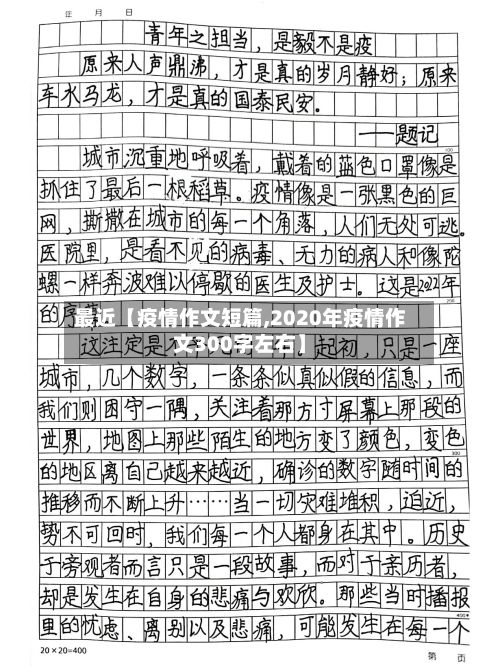 年 月 日
青年之担当，是毅不是疫
原来人声鼎沸，才是真的岁月静好；原来
车水马龙，才是真的国泰民安。
——题记
100
城市沉重地呼吸着，戴着的蓝色口罩像是
抓住了最后一根稻草。疫情像是一张黑色的巨
网，撕撒在城市的每一个角落，人们无处可逃。
医院里，是看不见的病毒、无力的病人和像陀
螺一样奔波难以停歇的医生及护士。这是2022年
200
的序幕
最近【疫情作文短篇,2020年疫情作
文300字左右】
这注定是 起初，只是一座
城市，几个数字，一条条似真似假的信息，而
我们则困守一隅，关注着那方寸屏幕上那段的
世界，地图上那些陌生的地方变了颜色，变色
300
的地区离自己越来越近，确诊的数字随时间的
推移而不断上升……当一切灾难堆积，迫近，
势不可回时，我们每一个人都身在其中。历史
于旁观者而言只是一段故事，而对于亲历者，
却是发生在自身的悲痛与欢欣。那些当时播报
400
里的忧虑、离别以及悲痛，可能发生在每一个
20×20=400
第 页